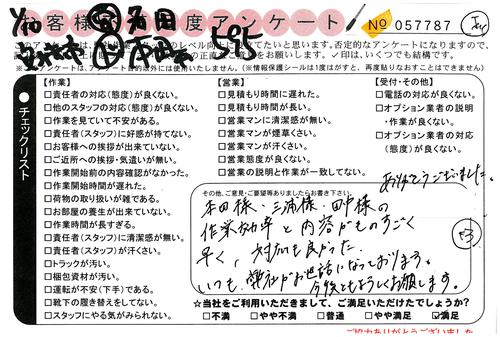 お客様満足度アンケート
No 057787
のアンケートは、
レベル向上に
たいと思います。否定的なアンケートになりますので、
正直なご意見をお願いします。✓印は、いくつでも結構です。
※アンケートは、アンケート目的以外には使用いたしません。(※情報保護シールは1度はがすと、再度貼りなおすことはできません)
595
●チェックリスト
【作業】
□責任者の対応(態度)が良くない。
□他のスタッフの対応(態度)が良くない。
□作業を見ていて不安がある。
□責任者(スタッフ)に好感が持てない。
□お客様への挨拶が出来ていない。
□ご近所への挨拶・気遣いが無い。
□作業開始前の内容確認がなかった。
□作業開始時間が遅れた。
□荷物の取り扱いが雑である。
□お部屋の養生が出来ていない。
□作業時間が長すぎる。
□責任者(スタッフ)に清潔感が無い。
□責任者(スタッフ)が汗くさい。
□トラックが汚い。
□梱包資材が汚い。
□運転が不安(下手)である。
□靴下の履き替えをしてない。
□スタッフにやる気がみられない。
【営業】
□見積もり時間に遅れた。
□見積もり時間が長い。
□営業マンに清潔感が無い。
□営業マンが煙草くさい。
□営業マンが汗くさい。
□営業態度が良くない。
□営業の説明と作業が一致してない。
【受付・その他】
□電話の対応が良くない。
□オプション業者の説明
・作業が良くない。
□オプション業者の対応
(態度)が良くない。
ありがとうございました。
その他、ご意見・ご要望等ありましたらお書き下さい。
本田様・三浦様・田中様の
作業効率と内容がものすごく
早く、対応も良かった。
いつも、弊社がお世話になっております。
今後ともよろしくお願いします。
☆当社をご利用いただきまして、ご満足いただけたでしょうか?
□不満 □やや不満 □普通 □やや満足 ☑満足
ご協力ありがとうございました